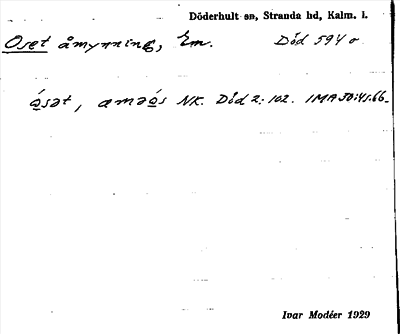 Döderhult sn, Stranda hd, Kalm. l.
Oset åmynning, Em. Död 594 o
ósət, aməós NK. Död 2:102. IMA 50:45.66.
Ivar Modéer 1929